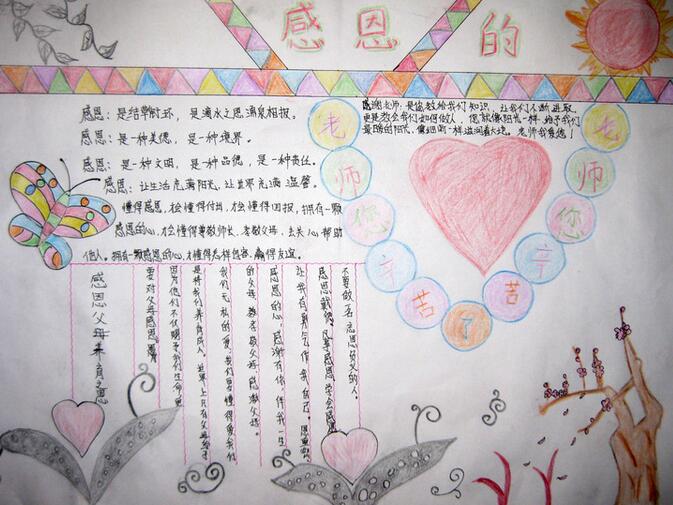 感恩的
感恩：是结草衔环，是滴水之恩涌泉相报。
感恩：是一种美德，是一种境界。
感恩：是一种文明，是一种品德，是一种责任。
感恩：让生活充满阳光，让世界充满温馨。
懂得感恩，才会懂得付出，才会懂得回报，拥有一颗
感恩的心，才会懂得尊敬师长，孝敬父母，去关心帮助
他人。拥有一颗感恩的心，才懂得怎样包容，赢得友谊。
感谢老师：是您教给我们知识，让我们不断进取，
更是教会我们如何做人，您就像阳光一样给予我们
最暖的阳光，像细雨一样滋润着大地。老师我爱您！
老师您辛苦了
老师您辛苦了
不要做一名忘恩负义的人。
感恩戴德，凡事感恩学会感
让我有勇气作我自己。
感恩的心，感谢有你，伴我一生
的父母，孝敬父母，感谢父母。
我们无私的爱，我们要懂得爱我们
是将我们养育成人，世界上只有父母给予
因为他们不仅赐予我们生命更
要对父母感恩
感恩父母养育之恩